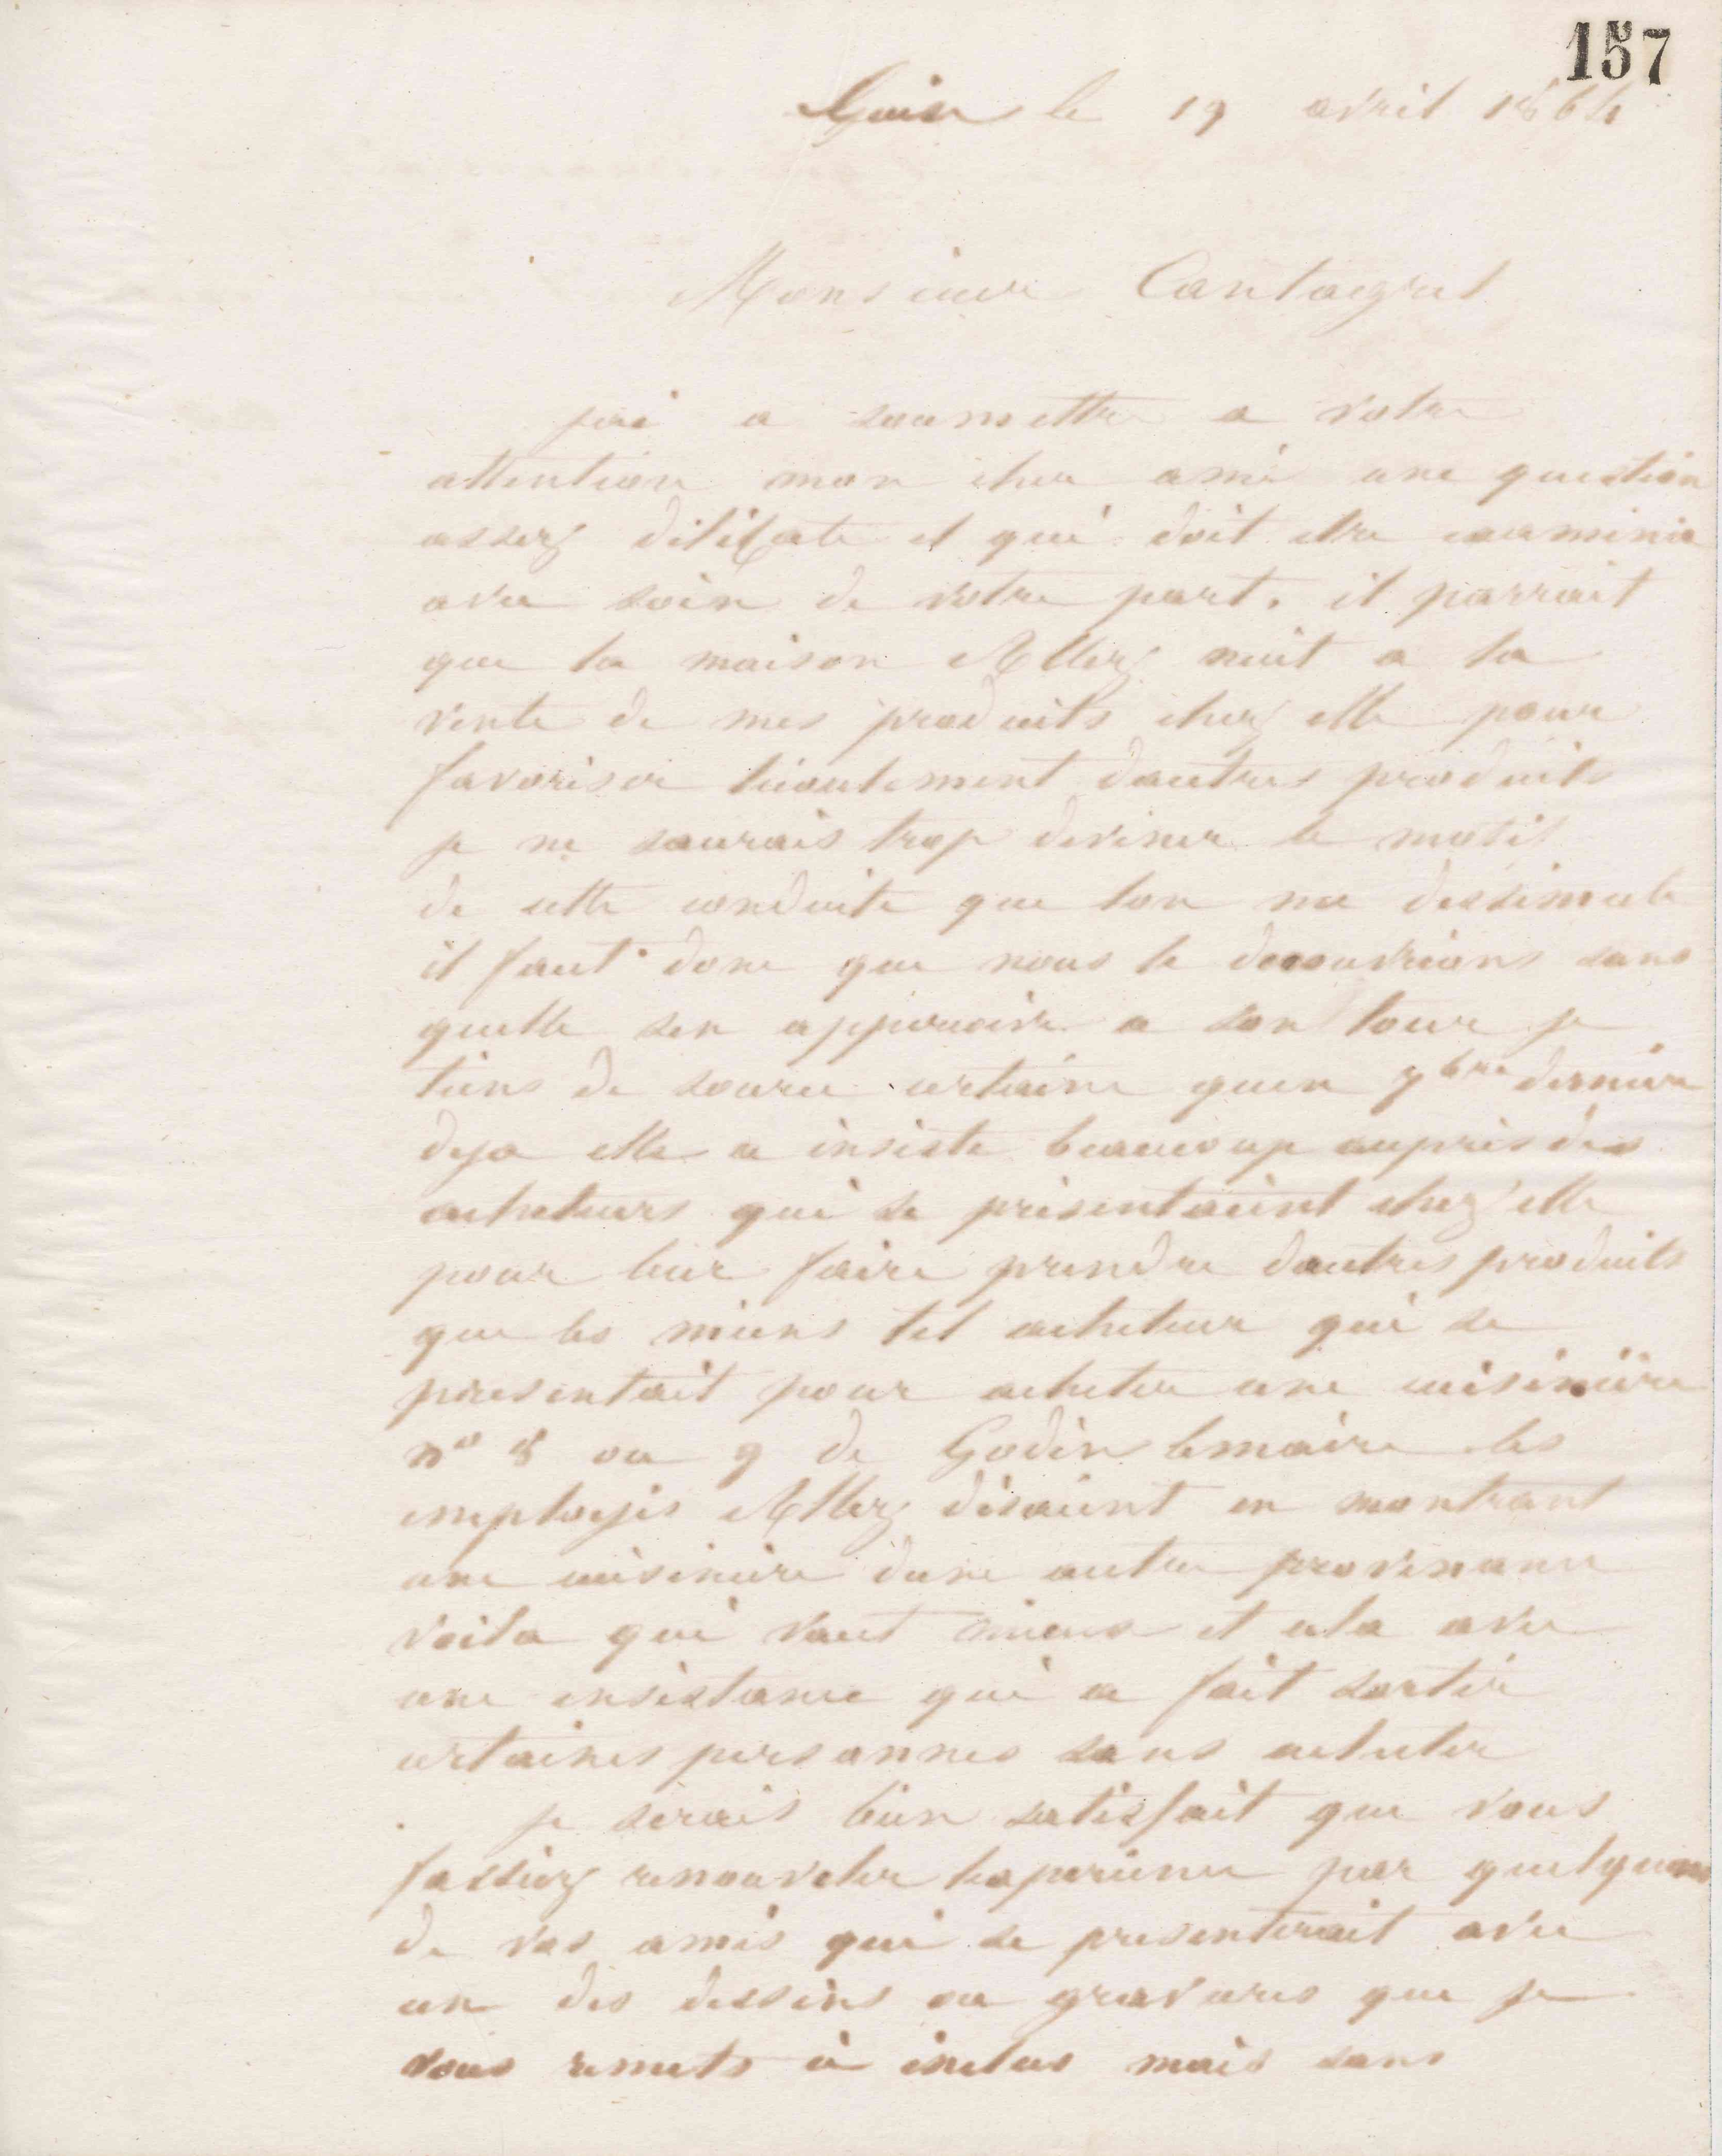 157
Guise le 19 avril 1864
Monsieur Cantagrel
jai a soumettre a votre
attention mon cher ami une question
assez délicate et qui doit etre examinée
avec soin de votre part. il parrait
que la maison Allez nuit a la
vente de mes produits chez elle pour
favoriser d'autres produits
je ne saurais trop deviner le motif
de cette conduite que lon me dessimule
il faut donc que nous le decouvrions sans
quelle sen apperçoive a son tour je
tiens de source certaine quen 7bre dernier
deja elle a insisté beaucoup auprès des
acheteurs qui se présentaient chez elle
pour leur faire prendre dautres produits
que les miens tel acheteur qui se
presentait pour acheter une cuisinière
nos 8 ou 9 de Godin lemaire les
employés Allez disaient en montrant
une cuisinière dune autre provenance
voila qui vaut mieux et cela avec
une insistance qui a fait sortir
certaines personnes sans acheter
je serais bien satisfait que vous
fassiez renouveler lexperience par quelquuns
de vos amis qui se presenterait avec
un des dessins ou gravures que je
vous remets ci inclus mais sans